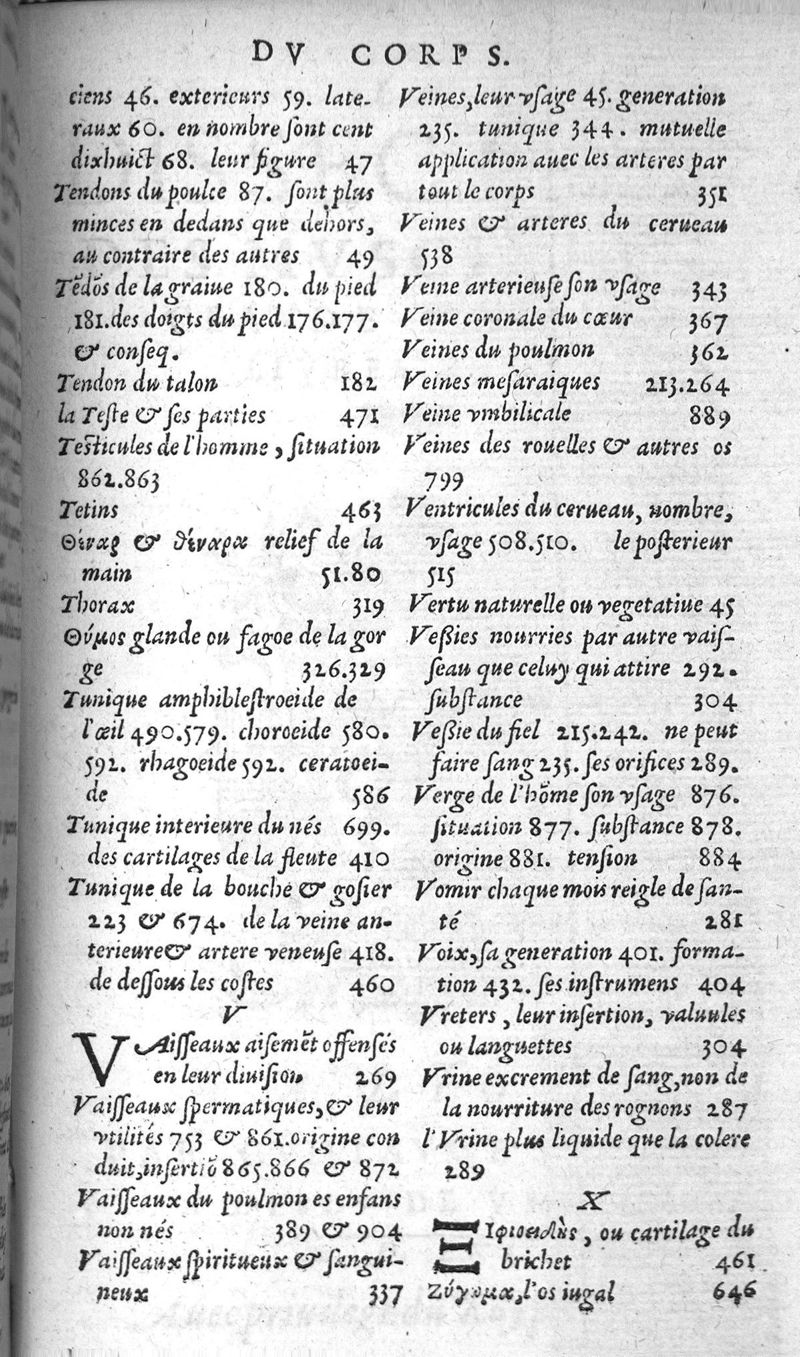 DV CORPS.
ciens 46. exterieurs 59. late-
raux 60. en nombre ſont cent
dixhuict 68. leur figure 47
Tendons du poulce 87. ſont plus
minces en dedans que dehors,
au contraire des autres 49
Tēdōs de la graiue 180. du pied
181. des doigts du pied 176.177.
& conſeq.
Tendon du talon 182
la Teſte & ſes parties 471
Teſticules de l'homme, ſituation
862.863
Tetins 463
Θίναρ & θίναρα relief de la
main 51.80
Thorax 319
Θύμος glande ou fagoe de la gor
ge 326.329
Tunique amphibleſtroeide de
l'œil 490.579. choroeide 580.
592. rhagoeide 592. ceratoei-
de 586
Tunique interieure du nés 699.
des cartilages de la fleute 410
Tunique de la bouche & goſier
223 & 674. de la veine an-
terieure & artere veneuſe 418.
de deſſous les coſtes 460
V
VAiſſeaux aiſemēt offenſés
en leur diuiſion 269
Vaiſſeaux ſpermatiques, & leur
vtilités 753 & 861. origine con
duit, inſertiō 865.866 & 872
Vaiſſeaux du poulmon es enfans
non nés 389 & 904
Vaiſſeaux ſpiritueux & ſangui-
neux 337
Veines, leur vſage 45. generation
235. tunique 344. mutuelle
application auec les arteres par
tout le corps 351
Veines & arteres du cerueau
538
Veine arterieuſe ſon vſage 343
Veine coronale du cœur 367
Veines du poulmon 362
Veines meſaraiques 213.264
Veine vmbilicale 889
Veines des rouelles & autres os
799
Ventricules du cerueau, nombre,
vſage 508.510. le poſterieur
515
Vertu naturelle ou vegetatiue 45
Veßies nourries par autre vaiſ-
ſeau que celuy qui attire 292.
ſubſtance 304
Veßie du fiel 215.242. ne peut
faire ſang 235. ſes orifices 289.
Verge de l'hōme ſon vſage 876.
ſituation 877. ſubſtance 878.
origine 881. tenſion 884
Vomir chaque mois reigle de ſan-
té 281
Voix, ſa generation 401. forma-
tion 432. ſes inſtrumens 404
Vreters, leur inſertion, valuules
ou languettes 304
Vrine excrement de ſang, non de
la nourriture des rognons 287
l'Vrine plus liquide que la colere
289
X
ΞΙφιοειδὴς, ou cartilage du
brichet 461
Ζύγωμα, l'os iugal 646